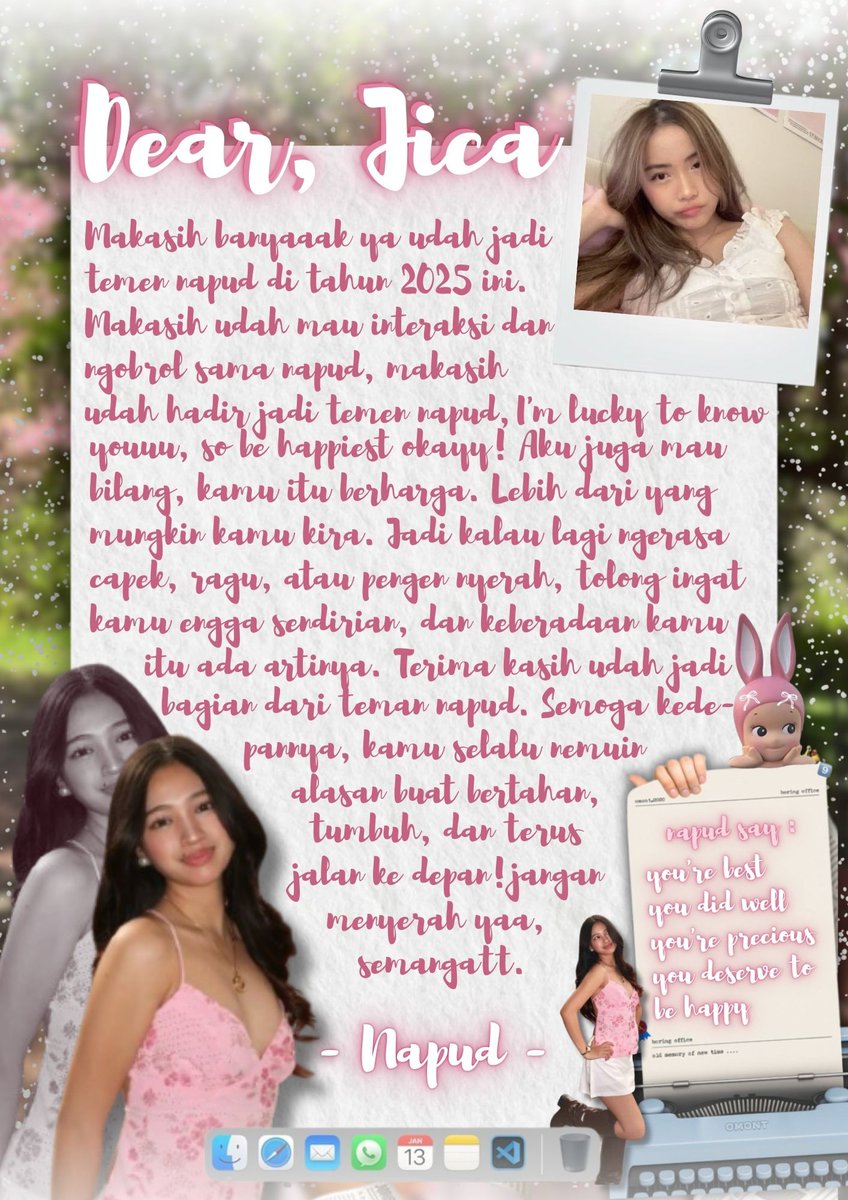 Dear, Jica
Makasih banyaaak ya udah jadi
temen napud di tahun 2025 ini.
Makasih udah mau interaksi dan
ngobrol sama napud, makasih
udah hadir jadi temen napud, I'm lucky to know
youuu, so be happiest okayy! Aku juga mau
bilang, kamu itu berharga. Lebih dari yang
mungkin kamu kira. Jadi kalau lagi ngerasa
capek, ragu, atau pengen nyerah, tolong ingat
kamu engga sendirian, dan keberadaan kamu
itu ada artinya. Terima kasih udah jadi
bagian dari teman napud. Semoga kede-
pannya, kamu selalu nemuin
alasan buat bertahan,
tumbuh, dan terus
jalan ke depan!jangan
menyerah yaa,
semangatt.
- Napud -
omont,2020
boring office
napud say :
you're best
you did well
you're precious
you deserve to
be happy
boring office
old memory of new time ....
OMONT
JAN
13